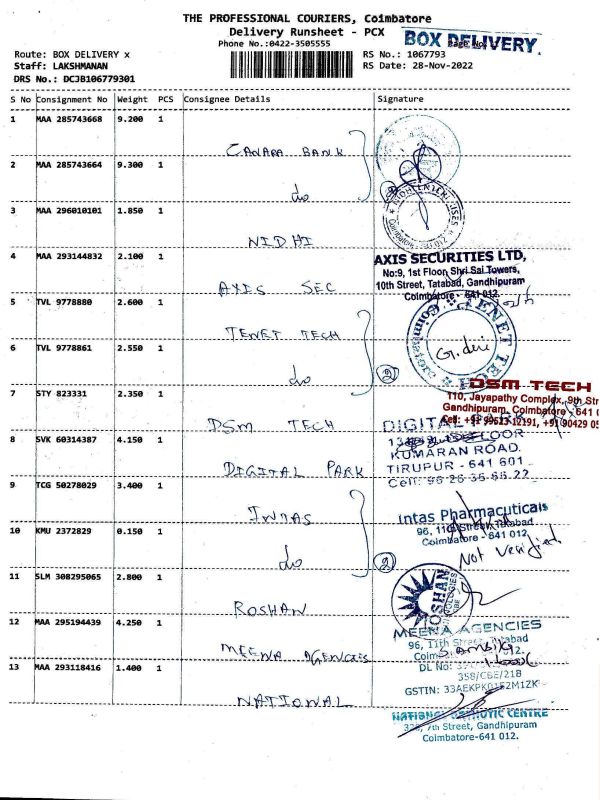 THE PROFESSIONAL COURIERS, Coimbatore
Delivery Runsheet - PCX
Phone No.:0422-3505555
BOX DELIVERY
Route: BOX DELIVERY x
Staff: LAKSHMANAN
DRS No.: DCJB106779301
RS No.: 1067793
RS Date: 28-Nov-2022
S No Consignment No Weight PCS Consignee Details Signature
1 MAA 285743668 9.200 1 CANARA BANK
2 MAA 285743664 9.300 1 do
3 MAA 296010101 1.850 1 NIDHI
NIDHI ENTERPRISES
4 MAA 293144832 2.100 1 AXIS SEC
AXIS SECURITIES LTD,
No:9, 1st Floor, Shri Sai Towers,
10th Street, Tatabad, Gandhipuram
Coimbatore - 641 012.
5 TVL 9778880 2.600 1 TENET TECH
TENET TECH
6 TVL 9778861 2.550 1 do
2
7 STY 823331 2.350 1 DSM TECH
DSM TECH
110, Jayapathy Complex, 9th Str
Gandhipuram, Coimbatore - 641 0
Cell: +91 99623 12191, +91 90429 05
8 SVK 60314387 4.150 1 DIGITAL PARK
DIGITAL PARK
FLOOR
KUMARAN ROAD.
TIRUPUR - 641 601
Cell:
9 TCG 50278029 3.400 1 INTAS
Intas Pharmacuticals
96, 11th Street, Tatabad
Coimbatore - 641 012
10 KMU 2372829 0.150 1 do
2
Not Verified
11 SLM 308295065 2.800 1 ROSHAN
ROSHAN
12 MAA 295194439 4.250 1 MEENA AGENCIES
MEENA AGENCIES
96, 11th Street, Tatabad
DL No:
358/CBE/21B
GSTIN:
13 MAA 293118416 1.400 1 NATIONAL
7th Street, Gandhipuram
Coimbatore-641 012.